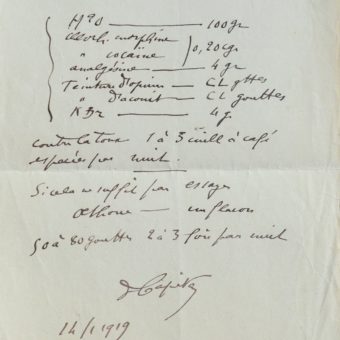 H²O — 100 gr
Chlorh. morphine
" cocaïne } 0,20 cgr
analgésine — 4 gr
Teinture d'opium — CL gttes
" d'aconit — CL gouttes
K Br — 4 g.
contre la toux 1 à 3 cuill à café
espacées par nuit.
Si cela ne suffit pas essayer
un flacon
50 à 80 gouttes 2 à 3 fois par nuit
14/1 1919